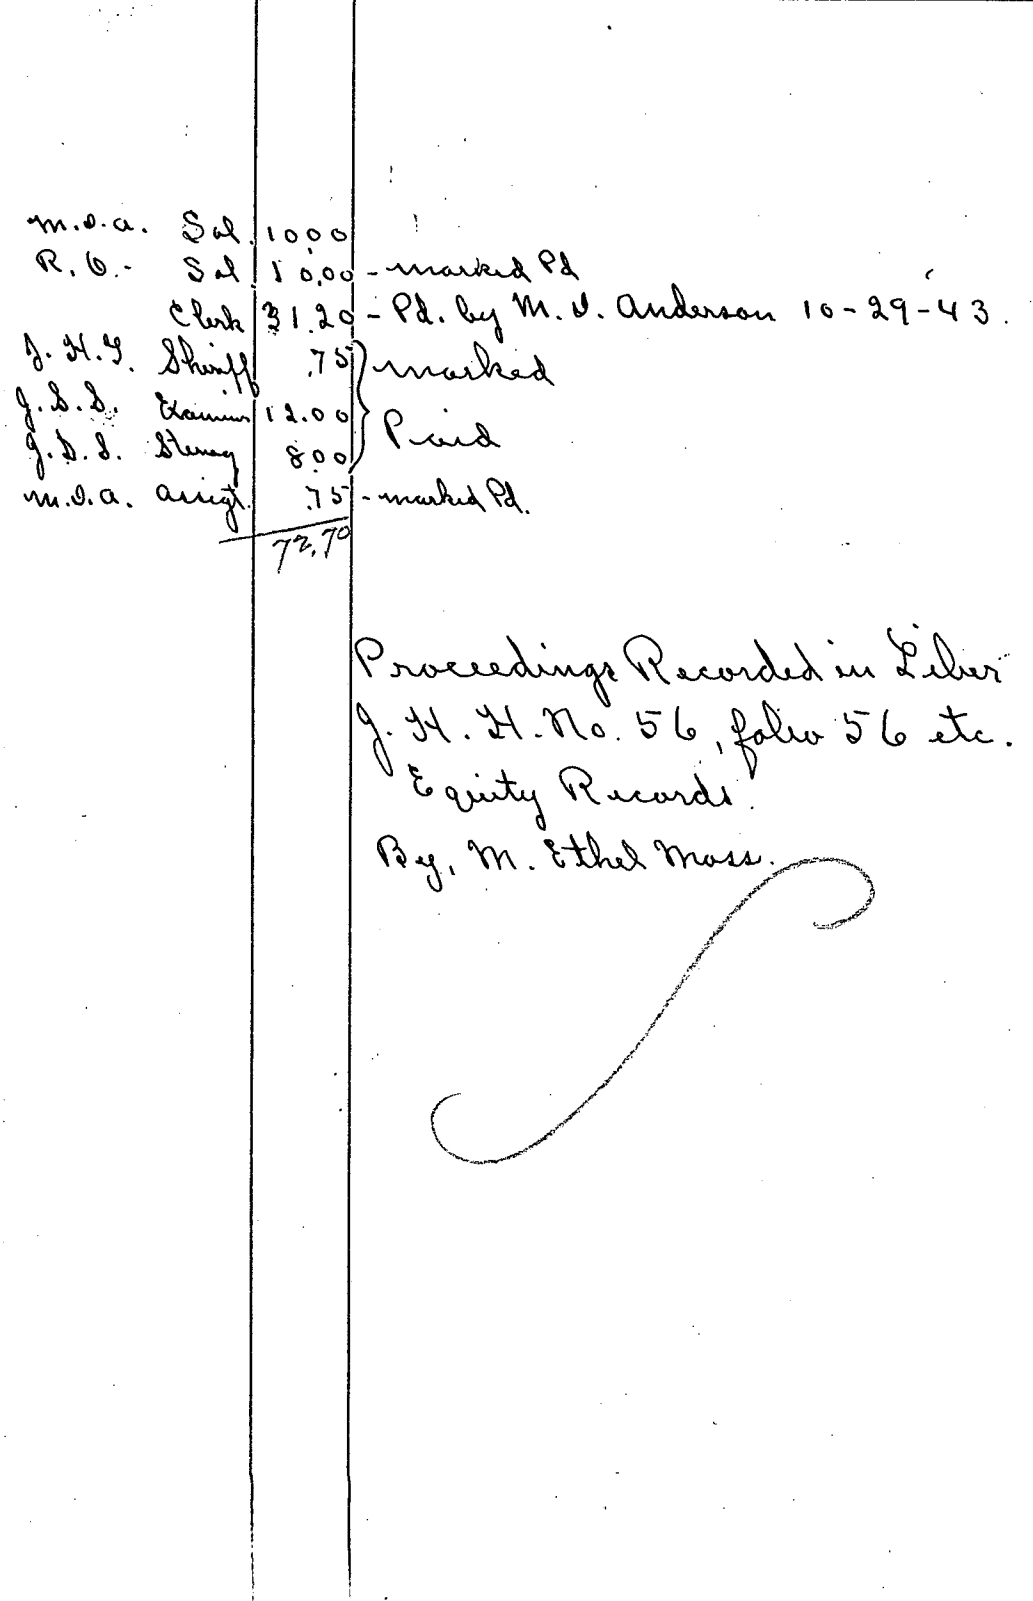 M.I.A. Sol. 10.00
R.C. - Sol 10.00 - marked Pd
Clerk 31.20 - Pd. by M. I. Anderson 10-29-43.
J.H.T. Sheriff .75 } marked
J.S.S. Examiner 12.00 } Paid
J.S.S. Stenog 8.00 }
M.I.A. Assigt. .75 - marked Pd.
72.70
Proceedings Recorded in Liber
J. H. H. No. 56, folio 56 etc.
Equity Records.
By, M. Ethel Moss.